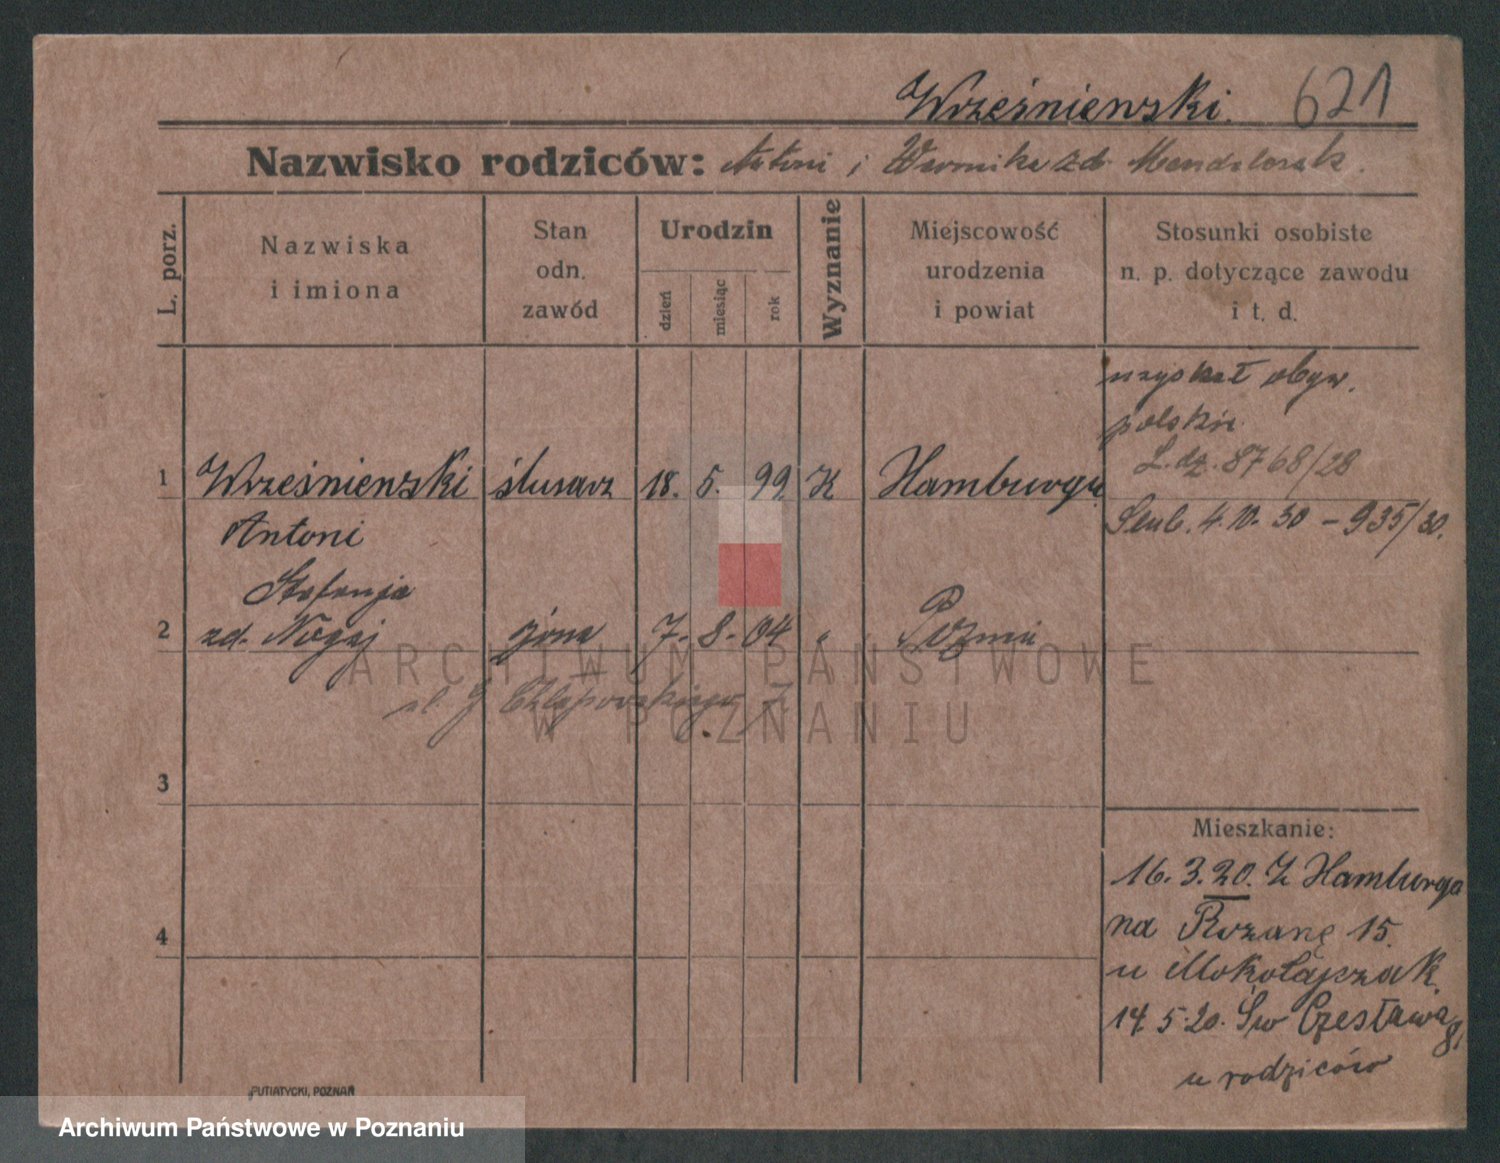 Wrześniewski. 621
Nazwisko rodziców: Antoni i Weronika zd.
L. porz.
Nazwiska
i imiona
Stan
odn.
zawód
Urodzin
dzień
miesiąc
rok
Wyznanie
Miejscowość
urodzenia
i powiat
Stosunki osobiste
n. p. dotyczące zawodu
i t. d.
uzyskał obyw.
polskie
L.dz. 8768/28
1 Wrześniewski ślusarz 18. 5. 99 K Hamburgu
4.10.30 – 935/30.
Antoni
Stefanja
2 zd. żona 7. 8. 04 " Poznań
ul. Chłapowskiego
ARCHIWUM PAŃSTWOWE
W POZNANIU
3
Mieszkanie:
16. 3. 20. Z Hamburga
na 15.
4
u
14. 5. 20. Św Czesława 8
u rodziców
PUTIATYCKI, POZNAŃ
Archiwum Państwowe w Poznaniu